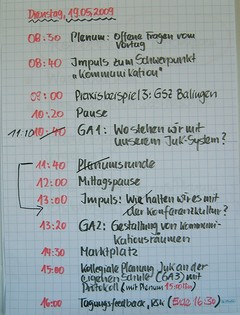 Dienstag, 19.05.2009
08:30 Plenum: offene Fragen vom
Vortag
08:40 Impuls zum Schwerpunkt
"Kommunikation"
09:00 Praxisbeispiel 3: GSZ Balingen
10:20 Pause
11:10 10:40 GA1: Wo stehen wir mit
unserem JuK-System?
11:40 Plenumsrunde
12:00 Mittagspause
13:00 Impuls: Wie halten wir es mit
der Konferenzkultur?
13:20 GA2: Gestaltung von Kommuni-
kationsräumen
14:30 Marktplatz
15:00 Kollegiale Planung JuK an der
eigenen Schule (GA3) mit
Protokoll (mit Plenum
16:00 Tagungsfeedback, (Ende 16:30)